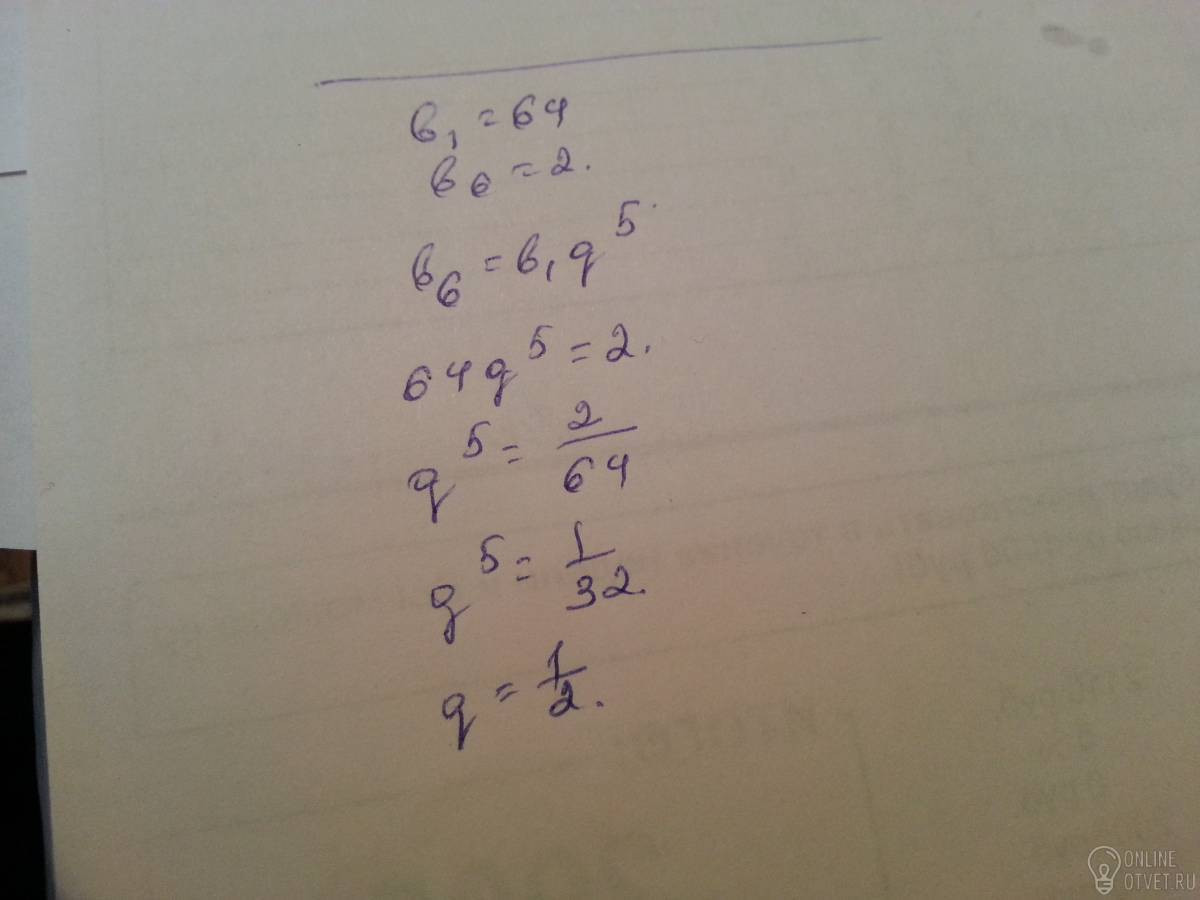 в₁ = 64
в₆ = 2.
в₆ = в₁q⁵
64q⁵ = 2.
q⁵ = 2/64
q⁵ = 1/32.
q = 1/2.
ONLINE
OTVET.RU